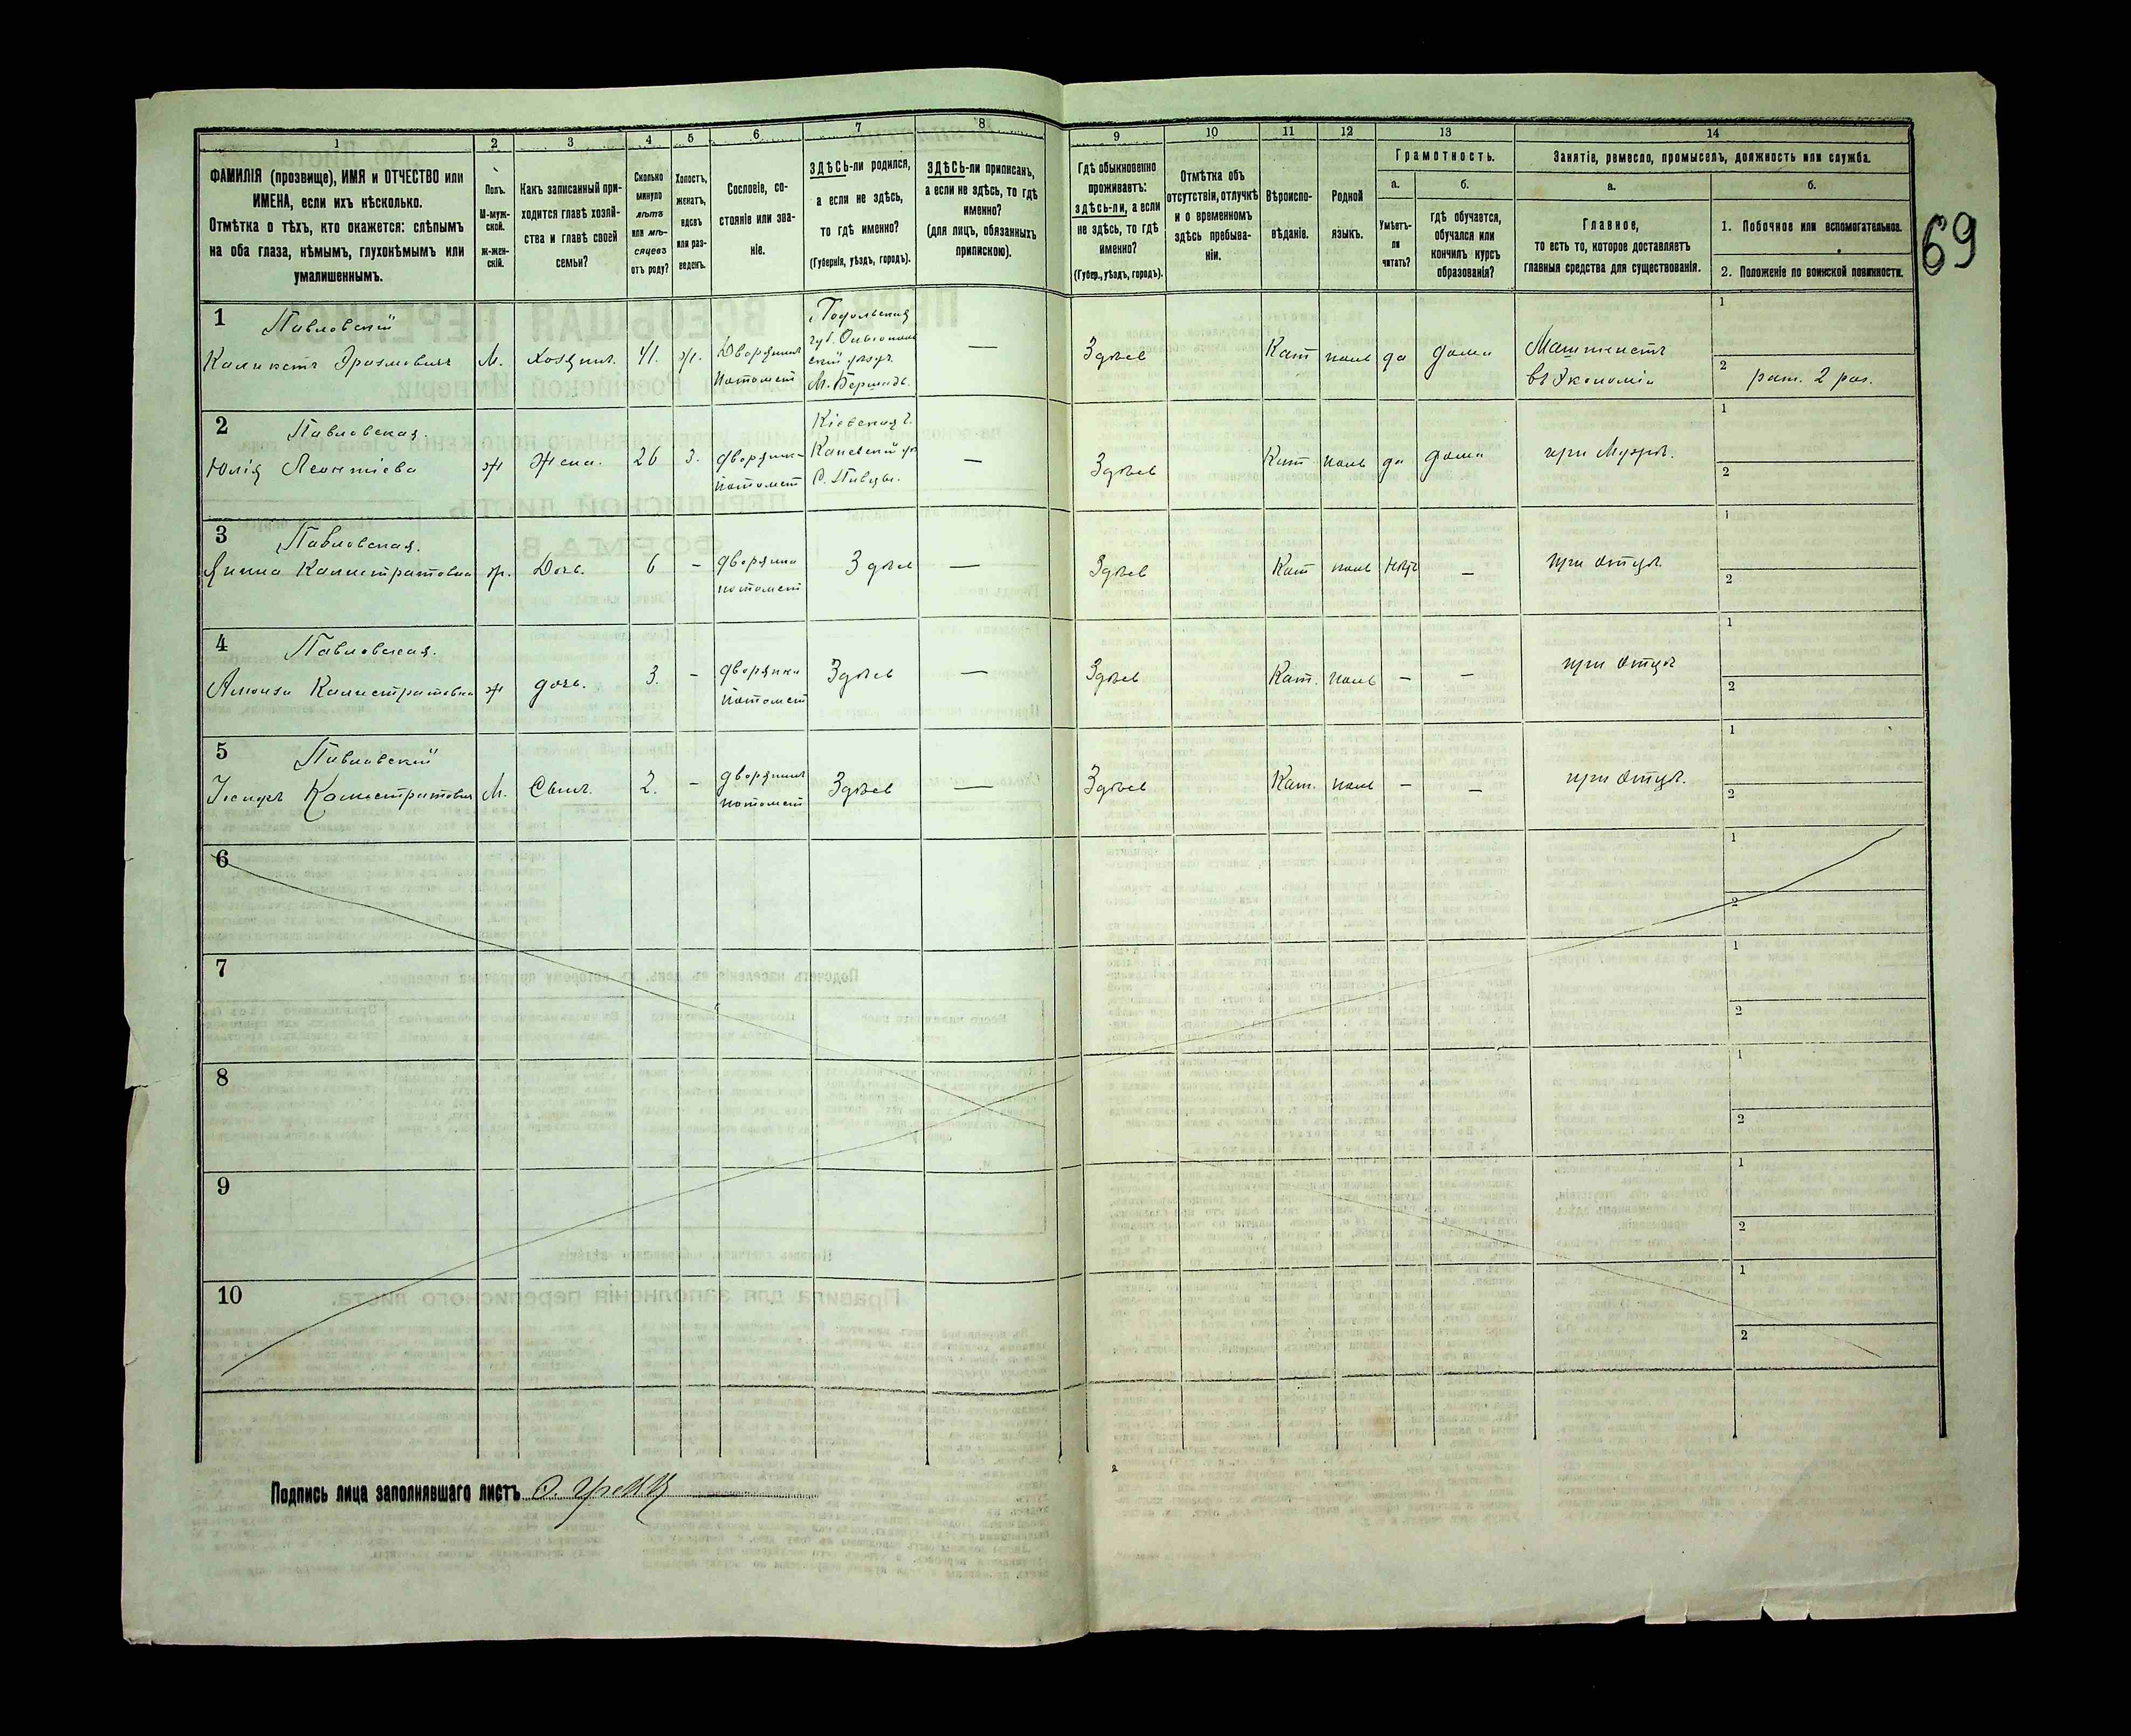 1
2
3
4
5
6
7
8
9
10
11
12
13
14
ФАМИЛІЯ (прозвище), ИМЯ и ОТЧЕСТВО или
ИМЕНА, если ихъ нѣсколько.
Отмѣтка о тѣхъ, кто окажется: слѣпымъ
на оба глаза, нѣмымъ, глухонѣмымъ или
умалишеннымъ.
Полъ.
М-муж-
ской.
ж-жен-
скій.
Какъ записанный при-
ходится главѣ хозяй-
ства и главѣ своей
семьи?
Сколько
минуло
лѣтъ
или мѣ-
сяцевъ
отъ роду?
Холостъ,
женатъ,
вдовъ
или раз-
веденъ.
Сословіе, со-
стояніе или зва-
ніе.
ЗДѢСЬ-ли родился,
а если не здѣсь,
то гдѣ именно?
(Губернія, уѣздъ, городъ).
ЗДѢСЬ-ли приписанъ,
а если не здѣсь, то гдѣ
именно?
(для лицъ, обязанныхъ
припискою).
Гдѣ обыкновенно
проживаетъ:
здѣсь-ли, а если
не здѣсь, то гдѣ
именно?
(Губер., уѣздъ, городъ).
Отмѣтка объ
отсутствіи, отлучкѣ
и о временномъ
здѣсь пребыва-
ніи.
Вѣроиспо-
вѣданіе.
Родной
языкъ.
Грамотность.
а.
Умѣетъ-
ли
читать?
б.
гдѣ обучается,
обучался или
кончилъ курсъ
образованія?
Занятіе, ремесло, промыселъ, должность или служба.
а.
Главное,
то есть то, которое доставляетъ
главныя средства для существованія.
б.
1. Побочное или вспомогательное.
2. Положеніе по воинской повинности.
69
1
Павловскій
Каликстъ Эразмовичъ
М.
Хозяинъ.
41.
ж.
Дворянинъ
потомст
Подольская
губ.
М. Бершадь.
—
Здѣсь
Кат
поль
да
дома
Машинистъ
въ Экономіи
1
2
рат. 2 раз.
2
Павловская.
Юлія Леонтіева
ж
Жена.
26
З.
дворянка
потомст
Кіевская г.
Каневскій у
С. Пивцы.
—
Здѣсь
Кат
поль
да
дома
при Мужѣ.
1
2
3
Павловская.
Янина Калистратовна
ж.
Дочь.
6
-
дворянка
потомст
Здѣсь
—
Здѣсь
Кат
поль
нѣтъ
—
при отцѣ.
1
2
4
Павловская.
Калистратовна
ж
дочь.
3.
-
дворянка
потомст
Здѣсь
—
Здѣсь
Кат.
поль
—
—
при отцѣ
1
2
5
Павловскій
Калистратович
М.
Сынъ.
2.
-
дворянинъ
потомст
Здѣсь
—
Здѣсь
Кат.
поль
—
—
при отцѣ.
1
2
6
1
2
7
1
2
8
1
2
9
1
2
10
1
2
Подпись лица заполнявшаго листъ